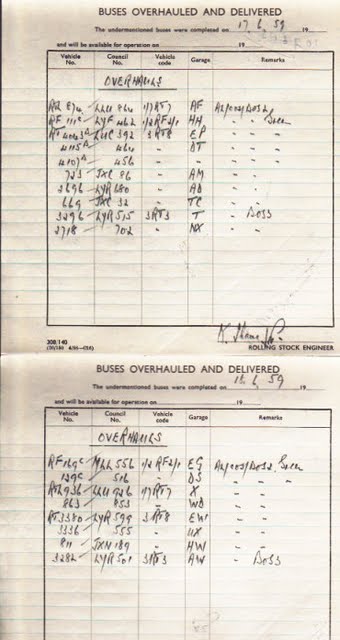 BUSES OVERHAULED AND DELIVERED
The undermentioned buses were completed on 17.6.59 19
and will be available for operation on 19
Vehicle No. Council No. Vehicle code Garage Remarks
OVERHAULS
LLU 864 1/7RT7 AF
RF LYF 462 1/2RF2/1 HH " "
LUC 392 3RT8 EP " "
4115A 464 " DT " "
4107A 456 " " " "
723 JXC 86 " AM " "
2696 LYR 680 " AD " "
669 JXC 32 " TC " "
3296 LYR 515 3RT3 T " DOSS
2718 702 " NX " "
308/140
ROLLING STOCK ENGINEER
BUSES OVERHAULED AND DELIVERED
The undermentioned buses were completed on 18.6.59 19
and will be available for operation on 19
Vehicle No. Council No. Vehicle code Garage Remarks
OVERHAULS
MLL 556 1/2RF2/1 EG
516 " DS " " "
RTL936 LLU 926 1/7RT7 X " "
863 853 " WD " "
RT3380 LYR 599 3RT8 EW " "
3336 555 " UX " "
811 JXN 189 " HW " "
3282 LYR 501 3RT3 AW " DOSS